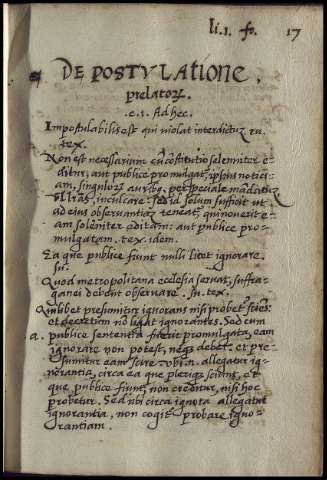 li. 1. fo. 17
DE POSTVLATIONE,
prelatorũ.
c. 1. Ad hec.
Impostulabilis est qui violat interdictuȝ. ru.
tex.
Non est necessarium cũ cõstitutio solemniter e-
ditur, aut publice promulgat, ipsius notici-
am, singulorũ auribus, per speciale mãdatuȝ
vel lr̃as, inculcare. Sed id solum sufficit ut
ad eius observantiaȝ teneat, qui noverit e-
am solẽniter editam: aut publice pro-
mulgatam. tex. idem.
Ea que publice fiunt nulli licet ignorare.
su.
Quod metropolitana ecclesia servat, suffra-
ganei debent observare. su. tex.
Quilibet presumitur ignorans nisi probet sciẽs:
et decretum nõ ligat ignorantes. Sed cum
a. publice sententia fuerit promulgata, eam
ignorare non potest, neqȝ debet: et pre-
sumitur eam scire. Ubi a. allegatur ig-
norantia, circa ea que pleriqȝ sciunt, et
que publice fiunt, non creditur, nisi hoc
probetur. Sed ubi circa ignota allegatur
ignorantia, non cogit probare igno-
rantiam.